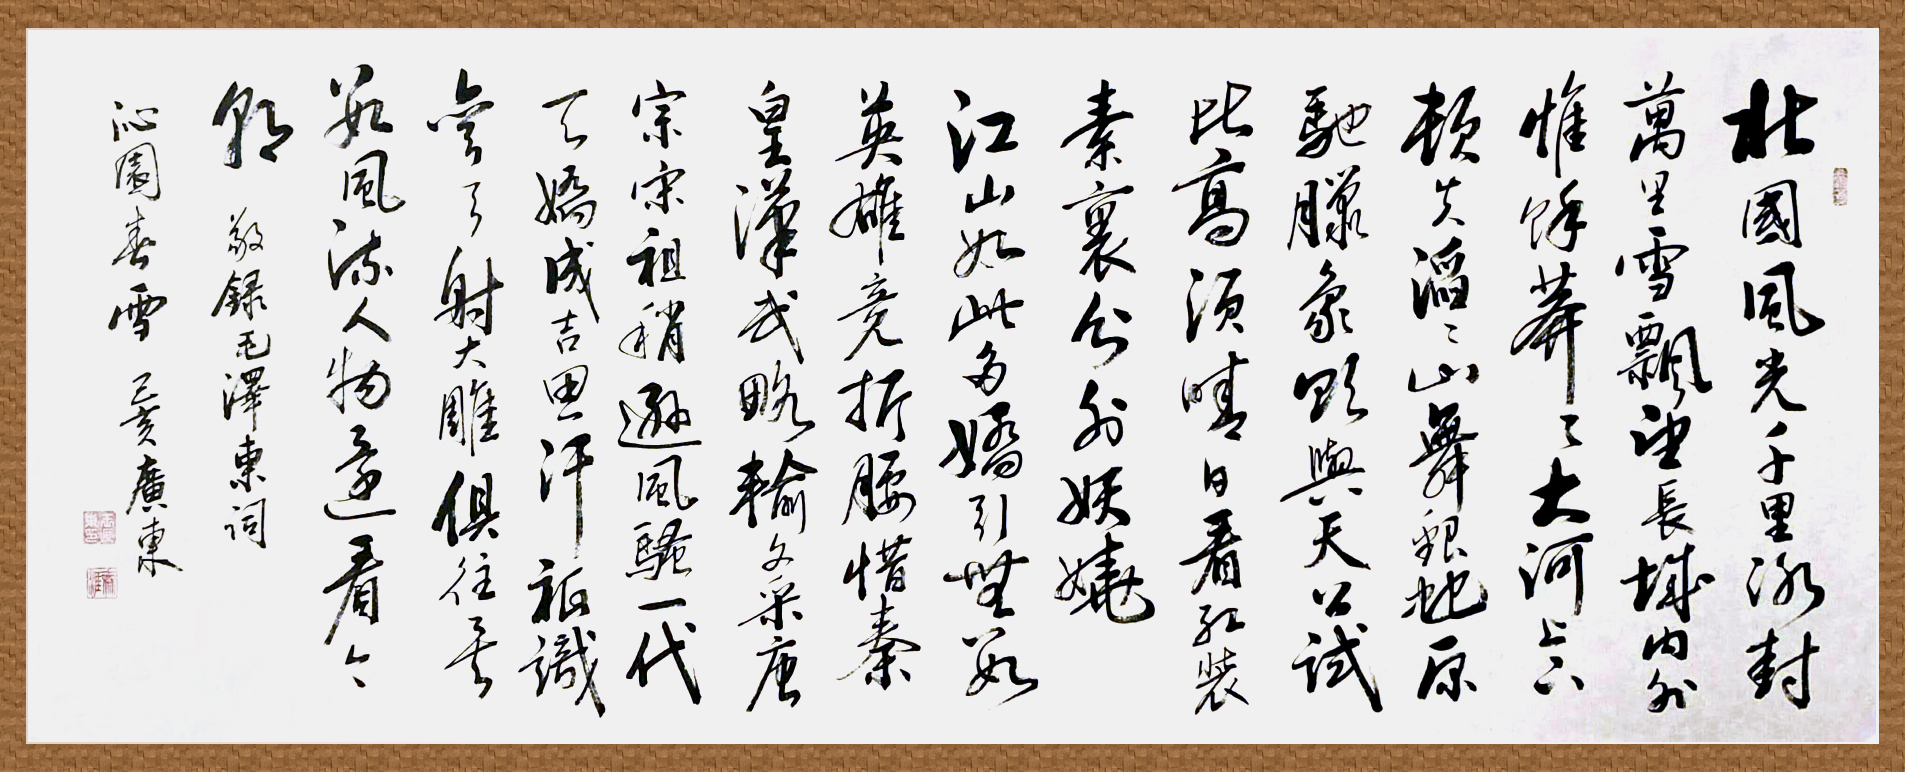 北國風光千里冰封
萬里雪飄望長城內外
惟餘莽々大河上下
頓失滔々山舞銀蛇原
馳臘象欲與天公試
比高須晴日看紅裝
素裹分外妖嬈
江山如此多嬌引無數
英雄竞折腰惜秦
皇漢武略輸文采唐
宗宋祖稍遜風騷一代
天嬌成吉思汗祗識
彎弓射大雕俱往矣
數風流人物還看今
朝 敬錄毛澤東詞
沁園春雪 己亥廣東